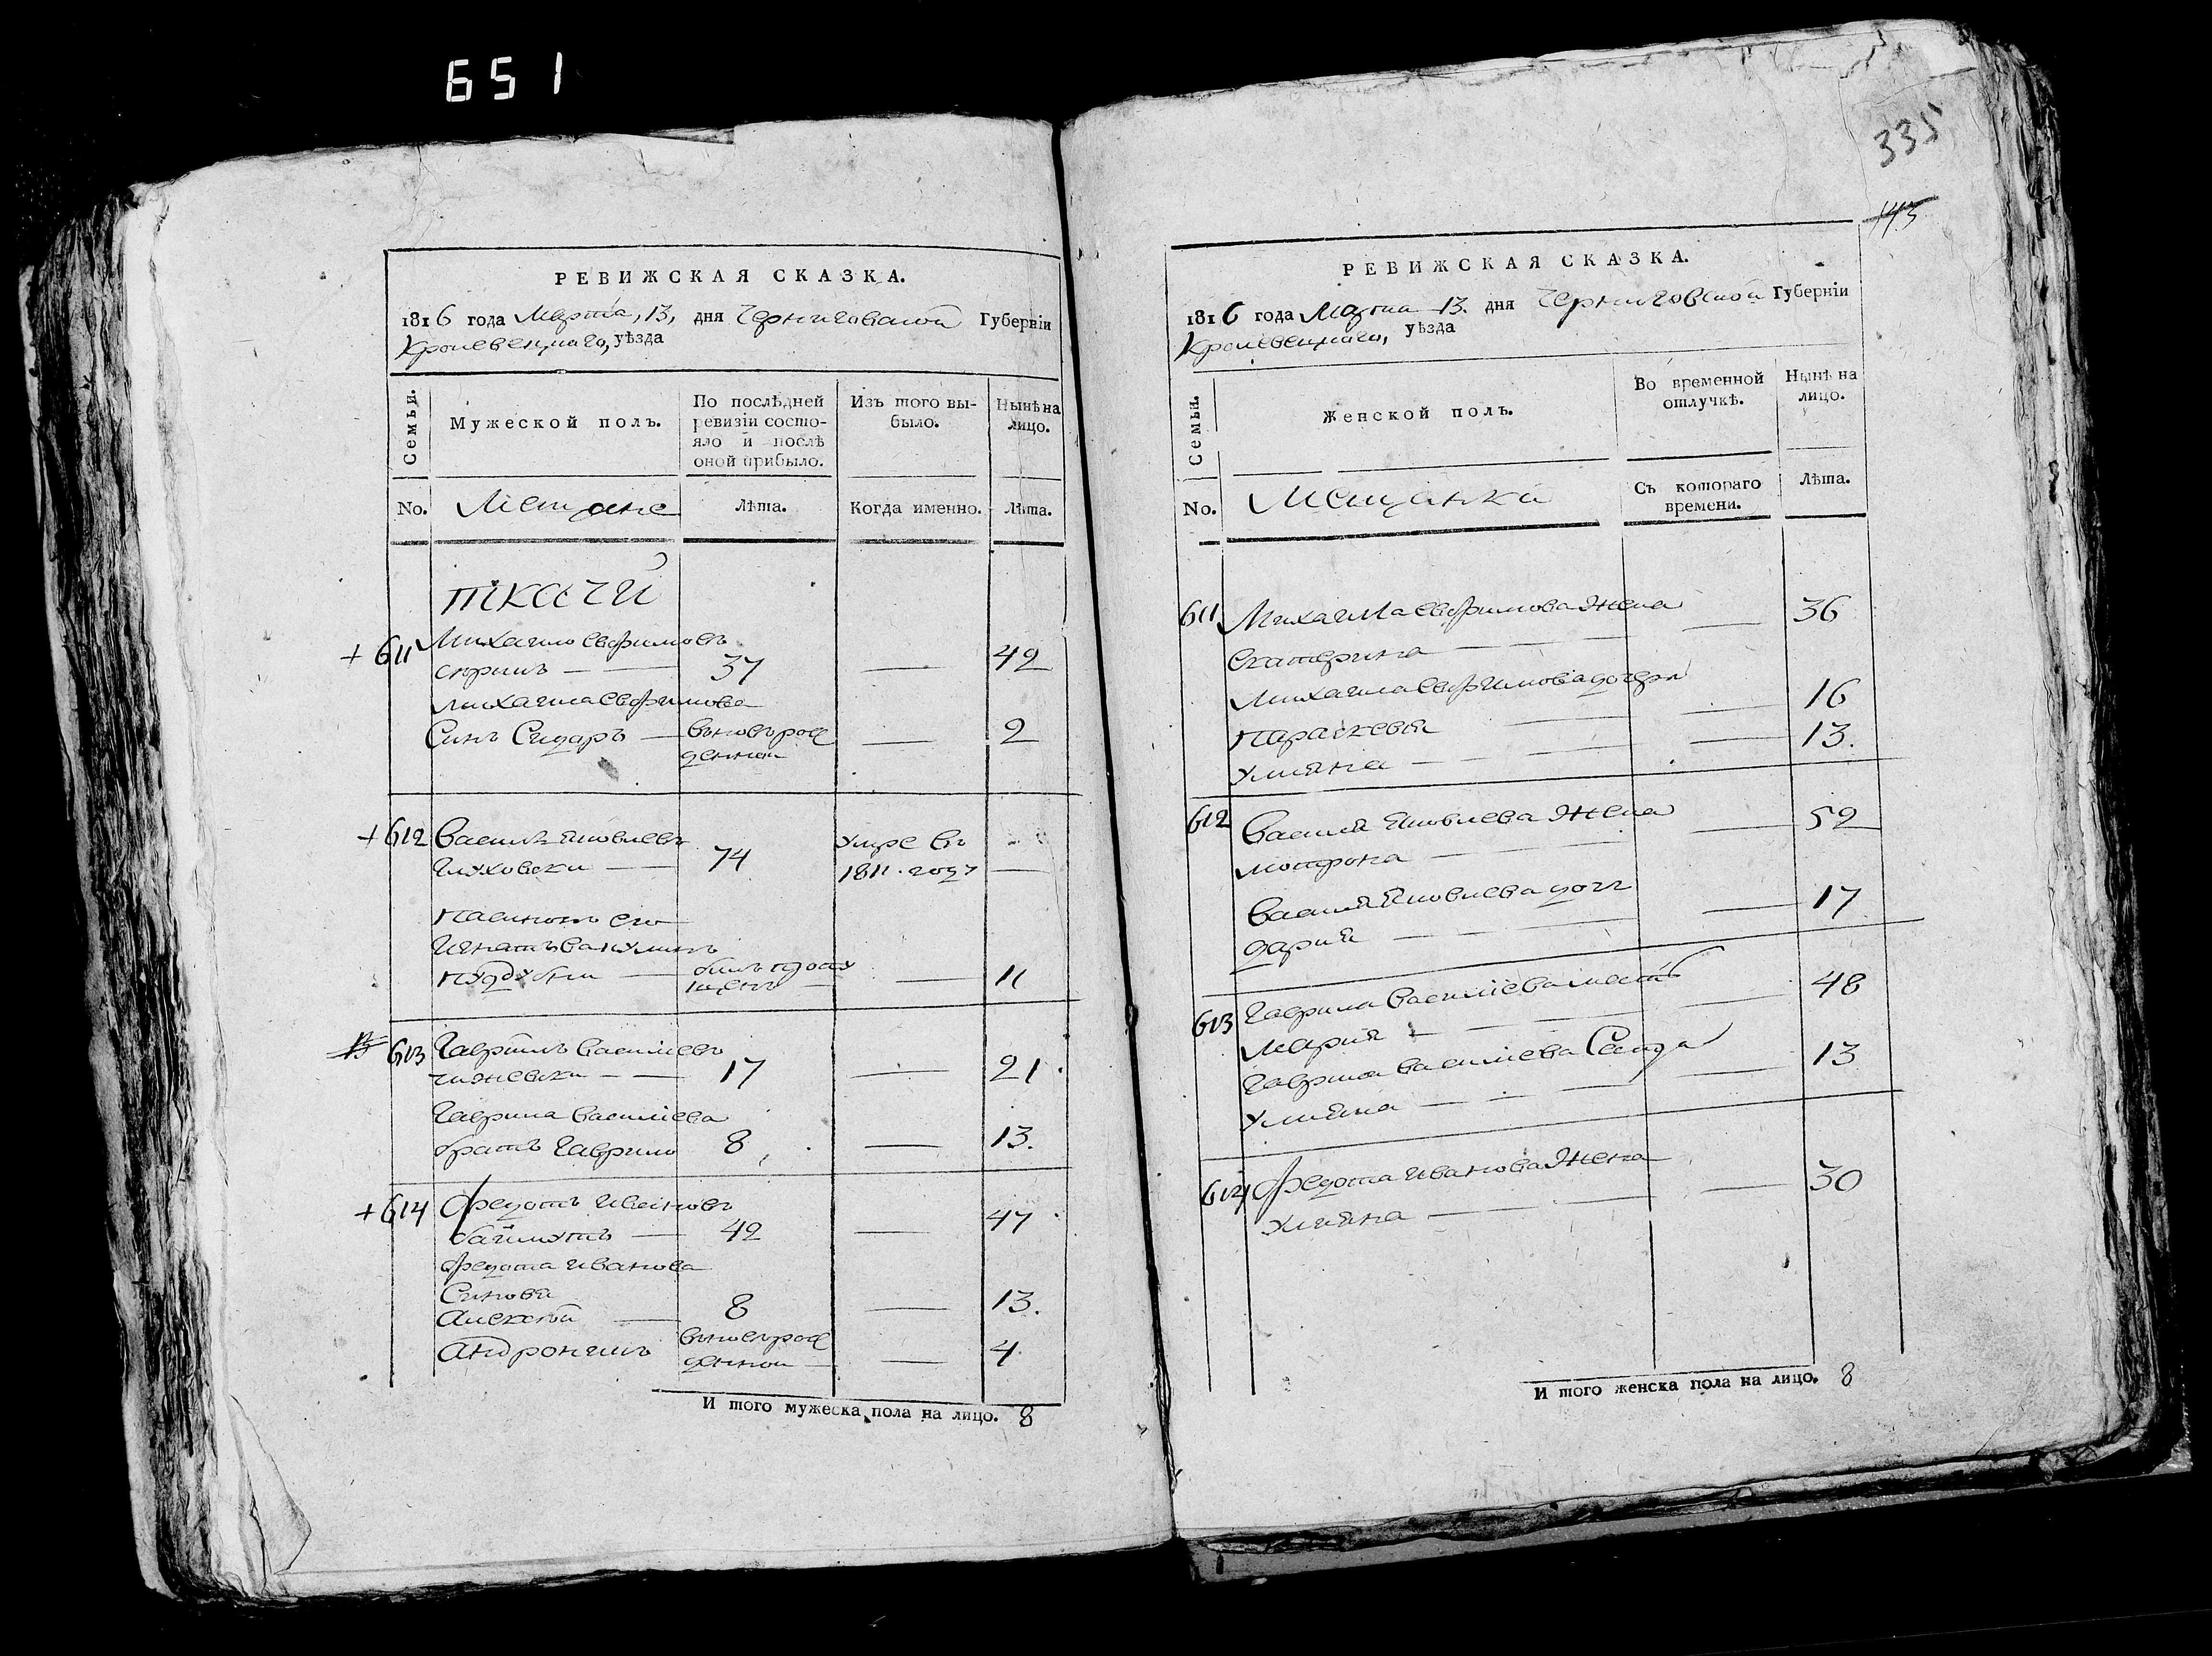 651
335
143
РЕВИЖСКАЯ СКАЗКА.
1816 года Марта, 13, дня Черниговской Губерніи
Кролевецкаго, уѣзда
Семьи.
Мужеской полъ.
По послѣдней
ревизіи состо-
яло и послѣ
оной прибыло.
Изъ того вы-
было.
Нынѣ на
лицо.
No.
Мещане
Лѣта.
Когда именно.
Лѣта.
ткачи
+ 611 Михаило Евфимовъ
37 — 42
Михаила Евфимова
Синъ Сидаръ — вьновърож — 2
денной
+ 612 Василь Яковлевъ
Глуховски — 74 умре въ
1811. году —
пасинокъ его
Игнатъ
— былъ пропу
щенъ — 11
613 Гаврилъ Василіевъ
— 17 — 21
Гаврила Василіева
братъ Гаврило 8 — 13.
+ 614 Федотъ Ивановъ
— 42 — 47
Федота Иванова
Синови
Алексѣй — 8 — 13.
Андронъ вьновърож
денной — 4
И того мужеска пола на лицо. 8
РЕВИЖСКАЯ СКАЗКА.
1816 года Марта 13. дня Черниговской Губерніи
Кролевецкаго, уѣзда
Семьи.
Женской полъ.
Во временной
отлучкѣ.
Нынѣ на
лицо.
No.
Мещанки
Съ котораго
времени.
Лѣта.
611 Михаила Евфимова Жена
Екатерина — 36
Михаила Евфимова дочери
Параскевія — 16
Улияна — 13.
612 Василя Яковлева Жена
Мотрона — 52
Василя Яковлева дочь
Дария — 17
613 Гаврила Василіева мать
Мария — 48
Гаврила Василіева Сестра
Улияна — 13
614 Федота Иванова Жена
Улияна — 30
И того женска пола на лицо. 8